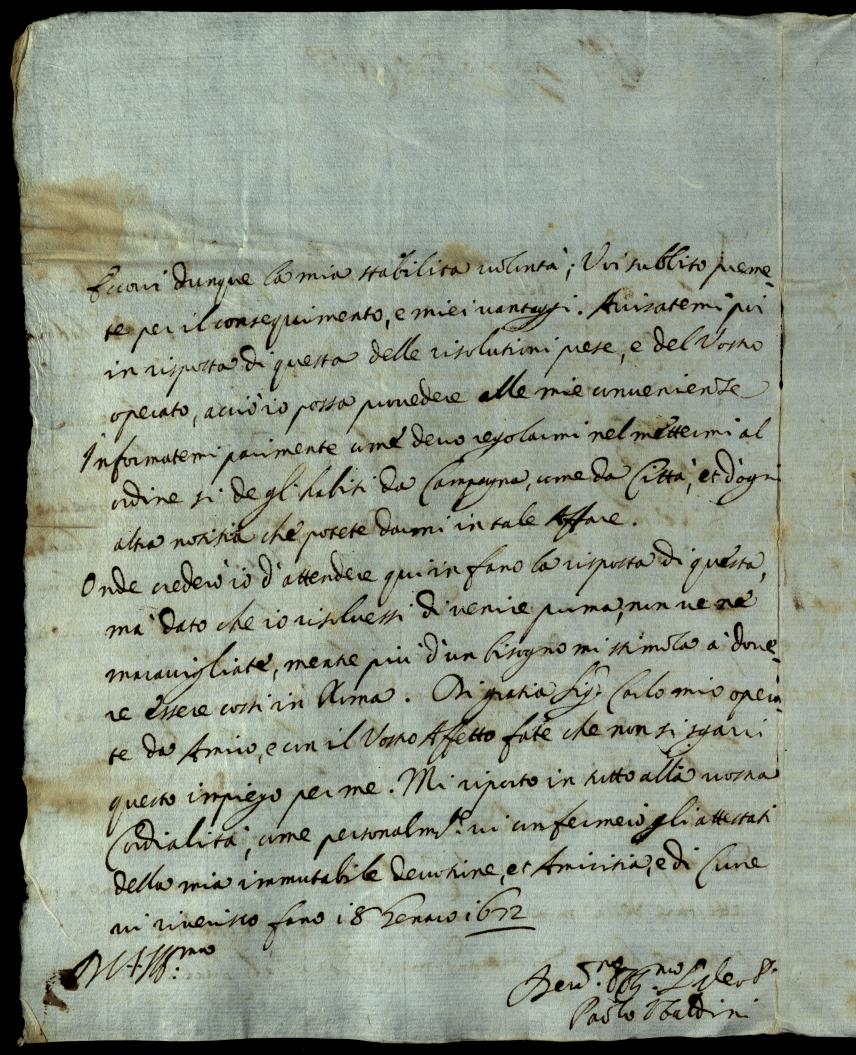 Eccovi dunque la mia stabilita volontà; Voi subbito preme-
te per il conseguimento, e miei vantaggi. Avisatemi poi
in risposta di questa delle risolutioni prese, e del Vostro
operato, acciò io possa provedere alle mie convenienze
Informatemi parimente come devo regolarmi nel mettermi al
ordine si de gl'habiti da Campagna, come da Città, et d'ogni
altra notitia che potete darmi in tale Affare.
Onde crederò io d'attendere qui in fano la risposta di questa,
ma dato che io risolvessi di venire prima, non ve ne
maravigliate, mentre più d'un bisogno mi stimola a dove-
re essere costì in Roma. Di gratia Sig.r Carlo mio opera-
te da Amico, e con il Vostro Affetto fate che non si sgarri
questo impiego per me. Mi riporto in tutto alla vostra
Cordialità, come personalm.te vi confermerò gli attestati
della mia immutabile devotione, et Amicitia, e di Cuore
vi riverisco fano 18 Genaro 1672
Paolo Ubaldini